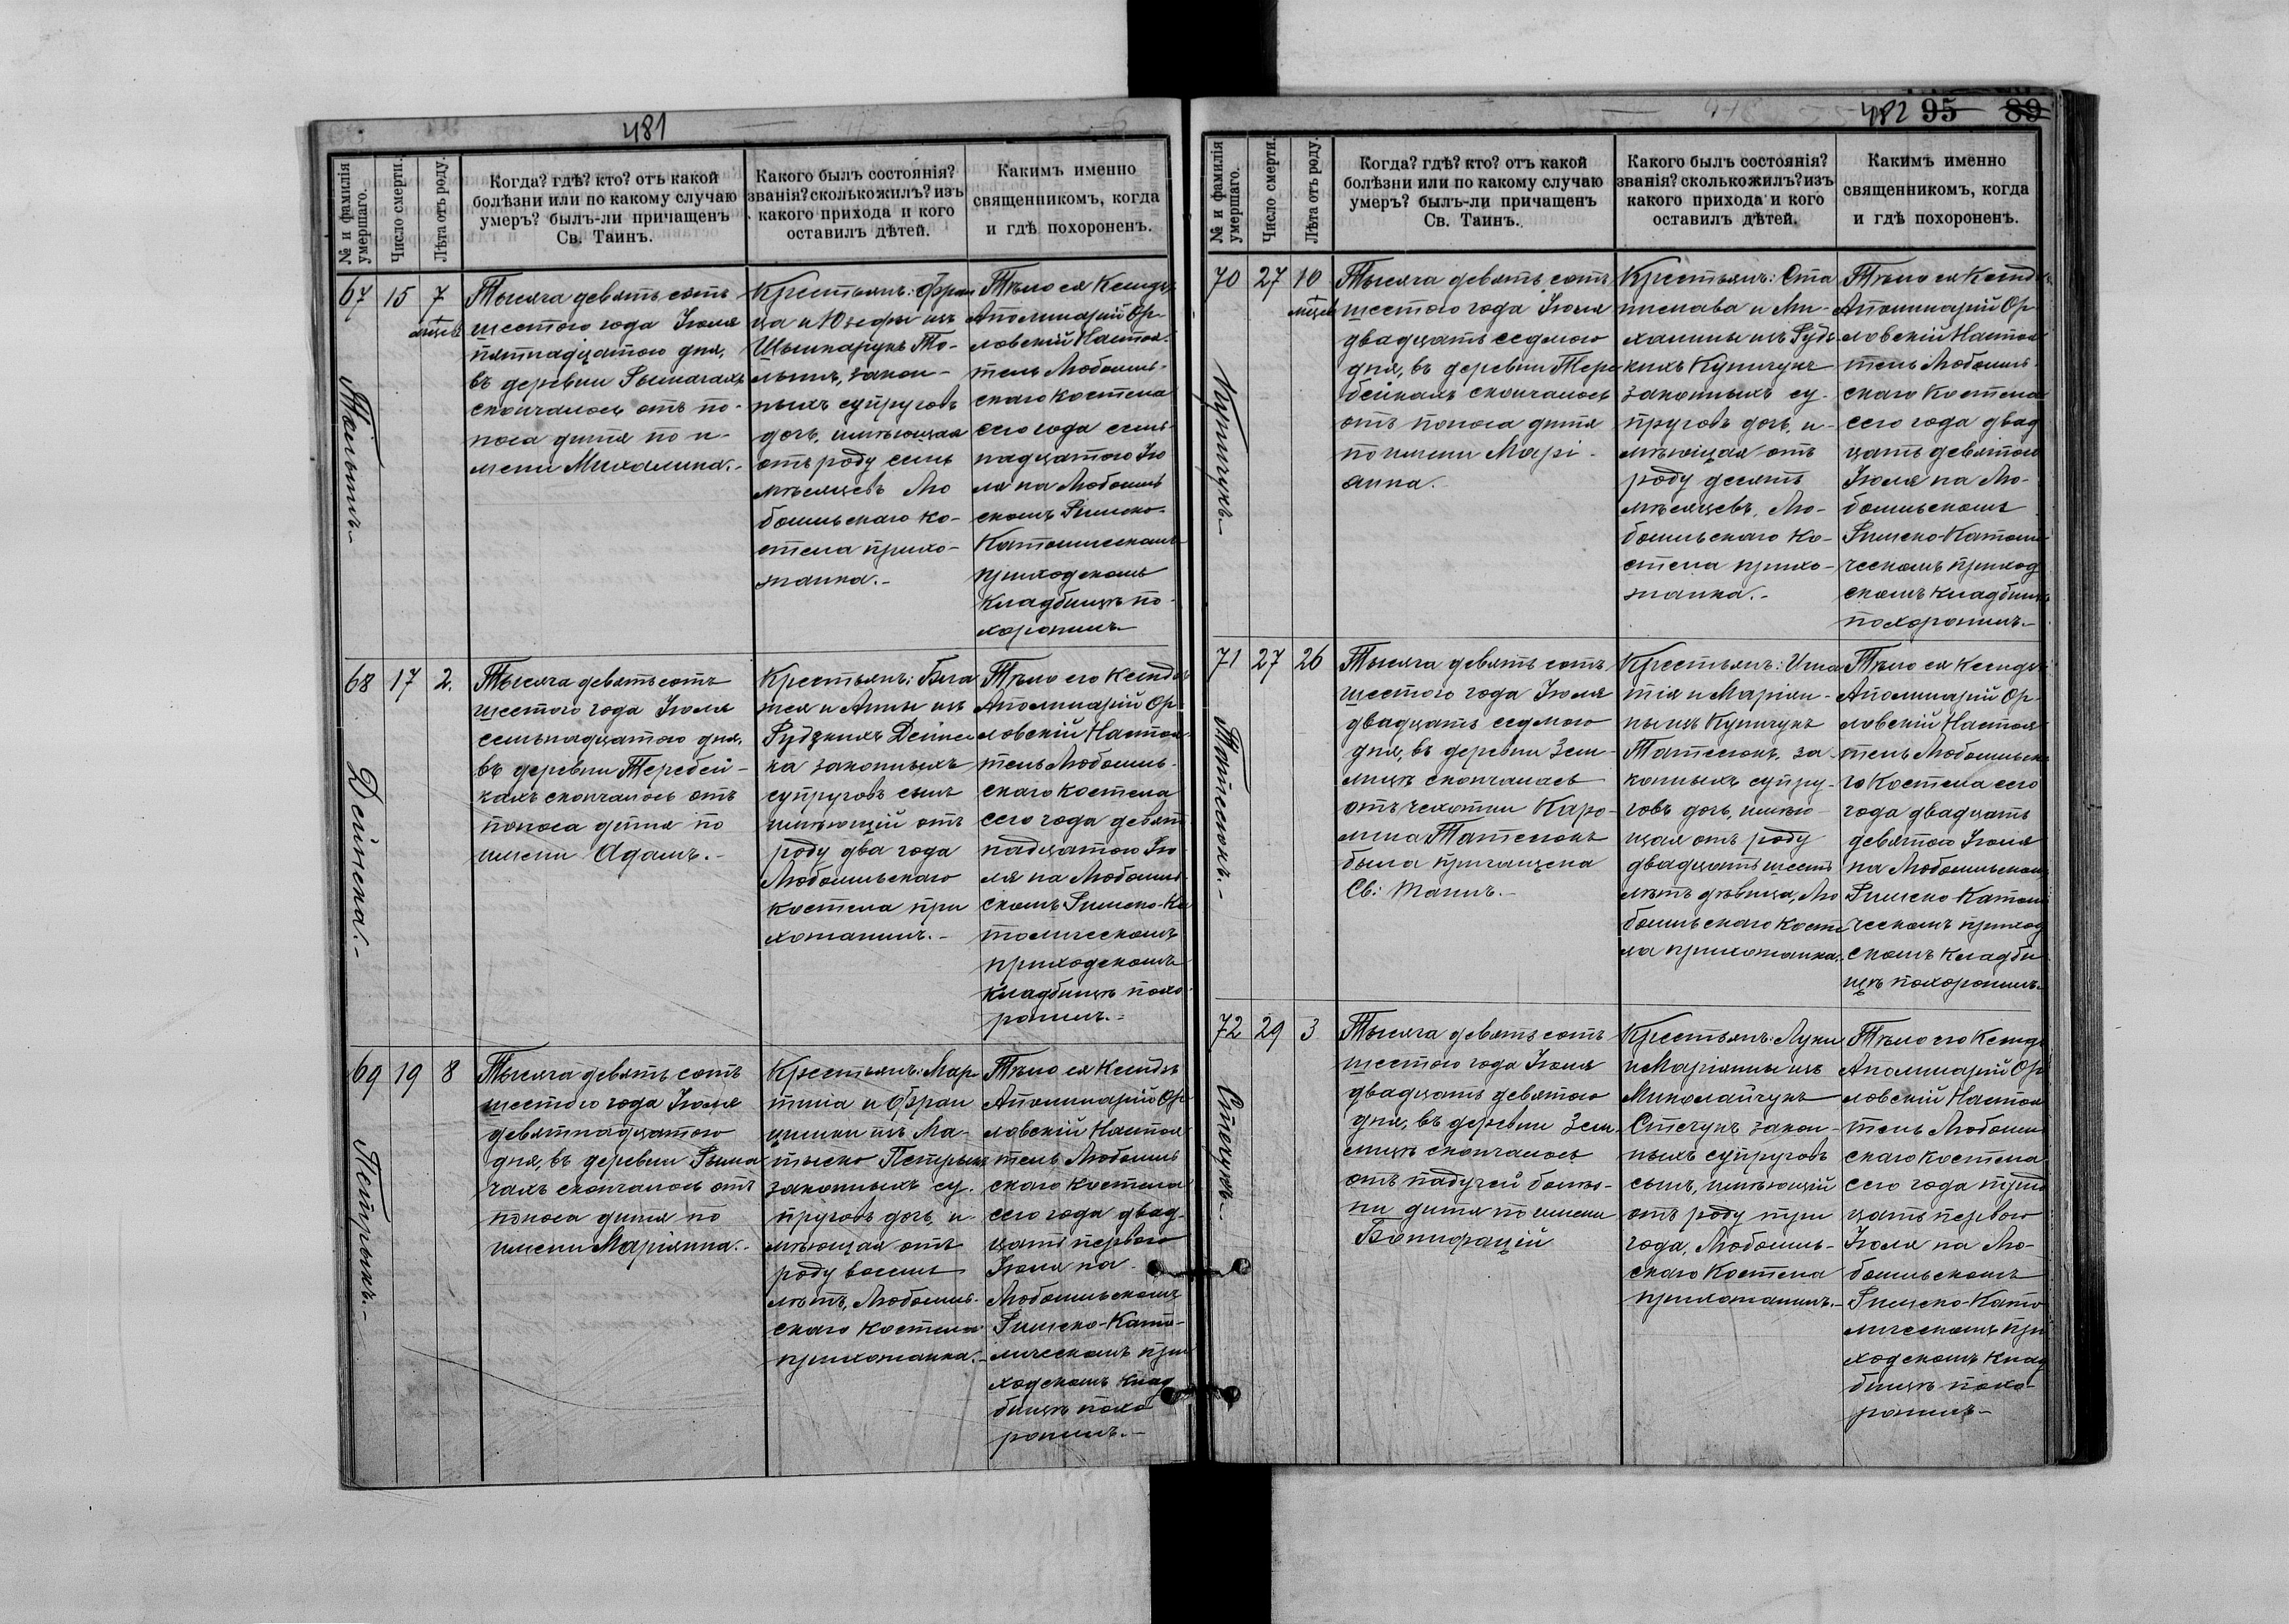 481
№ и фамилія умершаго.
Число смерти.
Лѣта отъ роду.
Когда? гдѣ? кто? отъ какой
болѣзни или по какому случаю
умеръ? былъ-ли причащенъ
Св. Таинъ.
Какого былъ состоянія?
званія? сколько жилъ? изъ
какого прихода и кого
оставилъ дѣтей.
Какимъ именно
священникомъ, когда
и гдѣ похороненъ.
67
15
7
мѣсяц.
Тысяча девятьсотъ
шестого года Іюля
пятнадцатого дня,
въ деревни Рымачахъ
скончалось отъ по-
носа дитя по и-
мени Михалина.-
Крестьянъ: Фран
ца и Юзефы изъ
То-
законн-
ныхъ супруговъ
дочь, имѣющая
отъ роду семь
мѣсяцевъ Лю
бомльскаго ко-
стела прихо-
жанка.-
Тѣло ея Ксендзъ
Аполинарій Ор-
ловскій Настоя-
тель Любомль-
скаго Костела
сего года семь-
надцатого Ію
ля на Любомль
скомъ Римско-
Католическомъ
приходскомъ
кладбищѣ по-
хоронилъ.-
68
17
2.
Дейнека.-
Тысяча девятьсотъ
шестого года Іюля
семьнадцатого дня,
въ деревни Теребей-
кахъ скончалось отъ
поноса дитя по
имени Адамъ.-
Крестьянъ: Бла
жея и Анны изъ
Рудзкихъ Дейне
ка законныхъ
супруговъ сынъ
имѣющій отъ
роду два года
Любомльскаго
костела при
хожанинъ.-
Тѣло его Ксендзъ
Аполинарій Ор
ловскій Настоя
тель Любомль-
скаго Костела
сего года девят
надцатого Ію
ля на Любомль-
скомъ Римско-Ка
толическомъ
приходскомъ
кладбищѣ похо
ронилъ.-
69
19
8
Петрыкъ.-
Тысяча девятьсотъ
шестого года Іюля
девятнадцатого
дня, въ деревни Рыма
чахъ скончалось отъ
поноса дитя по
имени Маріянна.-
Крестьянъ: Мар
тина и Фран
цишки изъ Ма-
Петрыкъ
законныхъ су-
пруговъ дочь, и-
мѣющая отъ
роду восемь
лѣтъ, Любомль-
скаго Костела
прихожанка.-
Тѣло ея Ксендзъ
Аполинарій Ор
ловскій Настоя
тель Любомль
скаго Костела
сего года двад-
цать первого
Іюля на
Любомльскомъ
Римско-Като-
лическомъ при
ходскомъ клад
бищѣ похо
ронилъ.-
482 95 89
№ и фамилія умершаго.
Число смерти.
Лѣта отъ роду.
Когда? гдѣ? кто? отъ какой
болѣзни или по какому случаю
умеръ? былъ-ли причащенъ
Св. Таинъ.
Какого былъ состоянія?
званія? сколько жилъ? изъ
какого прихода и кого
оставилъ дѣтей.
Какимъ именно
священникомъ, когда
и гдѣ похороненъ.
70
27
10
мѣсяц
Купичукъ.-
Тысяча девятьсотъ
шестого года Іюля
двадцать седмого
дня, въ деревни Тере
бейкахъ скончалось
отъ поноса дитя
по имени Марі-
анна.
Крестьянъ: Ста
нислава и Ми-
халины изъ Рудз
кихъ Купичукъ
законныхъ су-
пруговъ дочь, и-
мѣющая отъ
роду десять
мѣсяцевъ, Лю-
бомльскаго Ко-
стела прихо-
жанка.-
Тѣло ея Ксендзъ
Аполинарій Ор
ловскій Настоя
тель Любомль-
скаго Костела
сего года двад
цать девятого
Іюля на Лю-
бомльскомъ
Римско-Католи
ческомъ приход
скомъ кладбищѣ
похоронилъ.-
71
27
26
Татысюкъ.-
Тысяча девятьсотъ
шестого года Іюля
двадцать седмого
дня, въ деревни Зем-
лицѣ скончалась
отъ чехотки Каро-
лина Татысюкъ
была причащена
Св: Таинъ.-
Крестьянъ: Игна
тія и Маріян-
ны изъ Купичукъ
Татысюкъ, за-
конныхъ супру-
говъ дочь, имѣю-
щая отъ роду
двадцать шесть
лѣтъ дѣвица, Лю
бомльскаго косте
ла прихожанка.
Тѣло ея Ксендзъ
Аполинарій Ор-
ловскій Настоя-
тель Любомльска
го Костела сего
года двадцать
девятого Іюля
на Любомльском
Римско-Католи
ческомъ приход
скомъ кладби
щѣ похоронилъ.-
72
29
3
Стечукъ.-
Тысяча девятьсотъ
шестого года Іюля
двадцать девятого
дня, въ деревни Зем-
лицѣ скончалось
отъ падучей болѣз-
ни дитя по имени
Бонифацій
Крестьянъ: Луки
и Маріянны изъ
Миколайчукъ
Стечукъ закон-
ныхъ супруговъ
сынъ, имѣющій
отъ роду три
года, Любомль-
скаго Костела
прихожанинъ.-
Тѣло его Ксендз
Аполинарій Ор
ловскій Настоя
тель Любомль
скаго Костела
сего года трид
цать первого
Іюля на Лю-
бомльскомъ
Римско-Като
лическомъ при
ходскомъ клад
бищѣ похо-
ронилъ.-